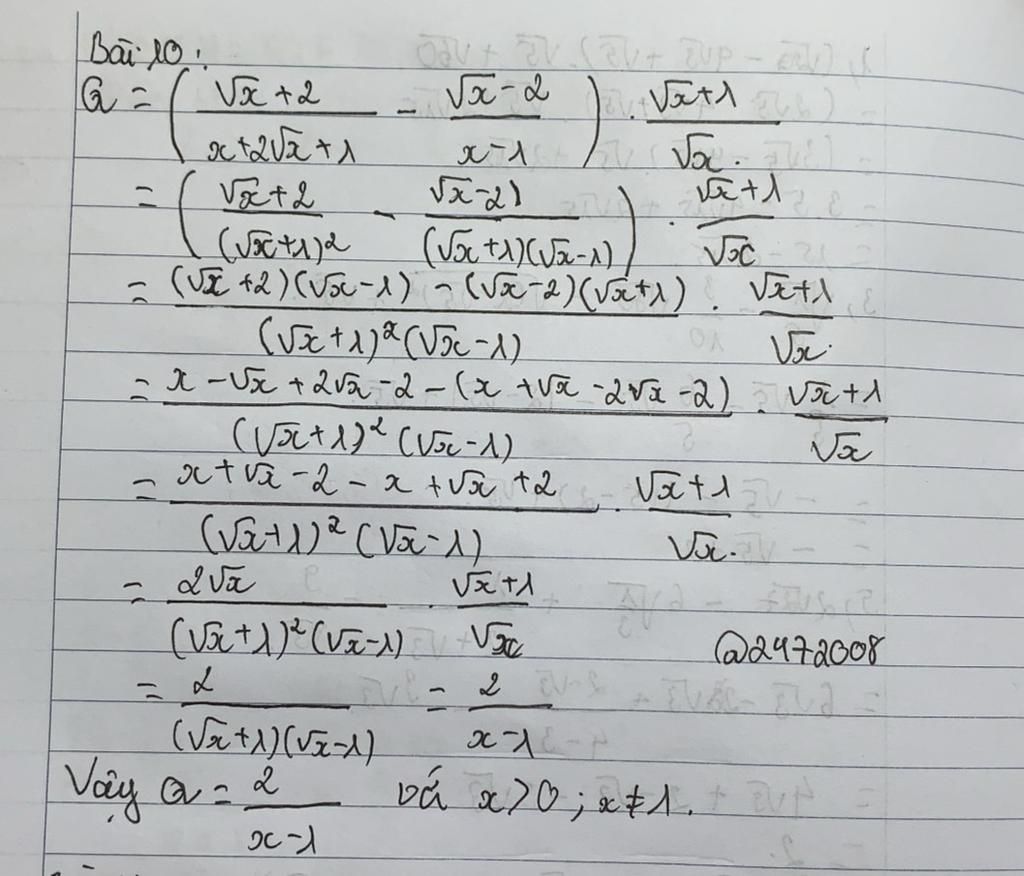 Bài 10:
Q = ( (√x + 2)/(x + 2√x + 1) - (√x - 2)/(x - 1) ) . (√x + 1)/√x.
= ( (√x + 2)/(√x + 1)² - (√x - 2)/((√x + 1)(√x - 1)) ) . (√x + 1)/√x
= ((√x + 2)(√x - 1) - (√x - 2)(√x + 1))/((√x + 1)²(√x - 1)) . (√x + 1)/√x.
= (x - √x + 2√x - 2 - (x + √x - 2√x - 2))/((√x + 1)²(√x - 1)) . (√x + 1)/√x
= (x + √x - 2 - x + √x + 2)/((√x + 1)²(√x - 1)) . (√x + 1)/√x.
= 2√x/((√x + 1)²(√x - 1)) . (√x + 1)/√x
@2472008
= 2/((√x + 1)(√x - 1)) = 2/(x - 1)
Vậy Q = 2/(x - 1) với x > 0 ; x ≠ 1.